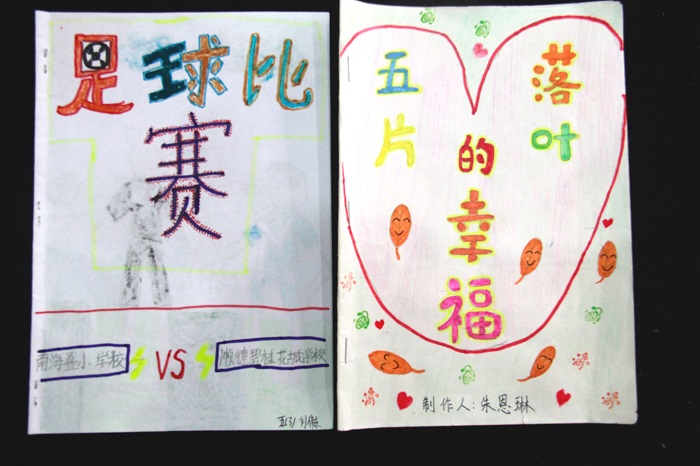 足球比
赛
南海 小学校 VS 顺德碧桂花城学校
五片
落叶
的幸福
制作人:朱恩琳